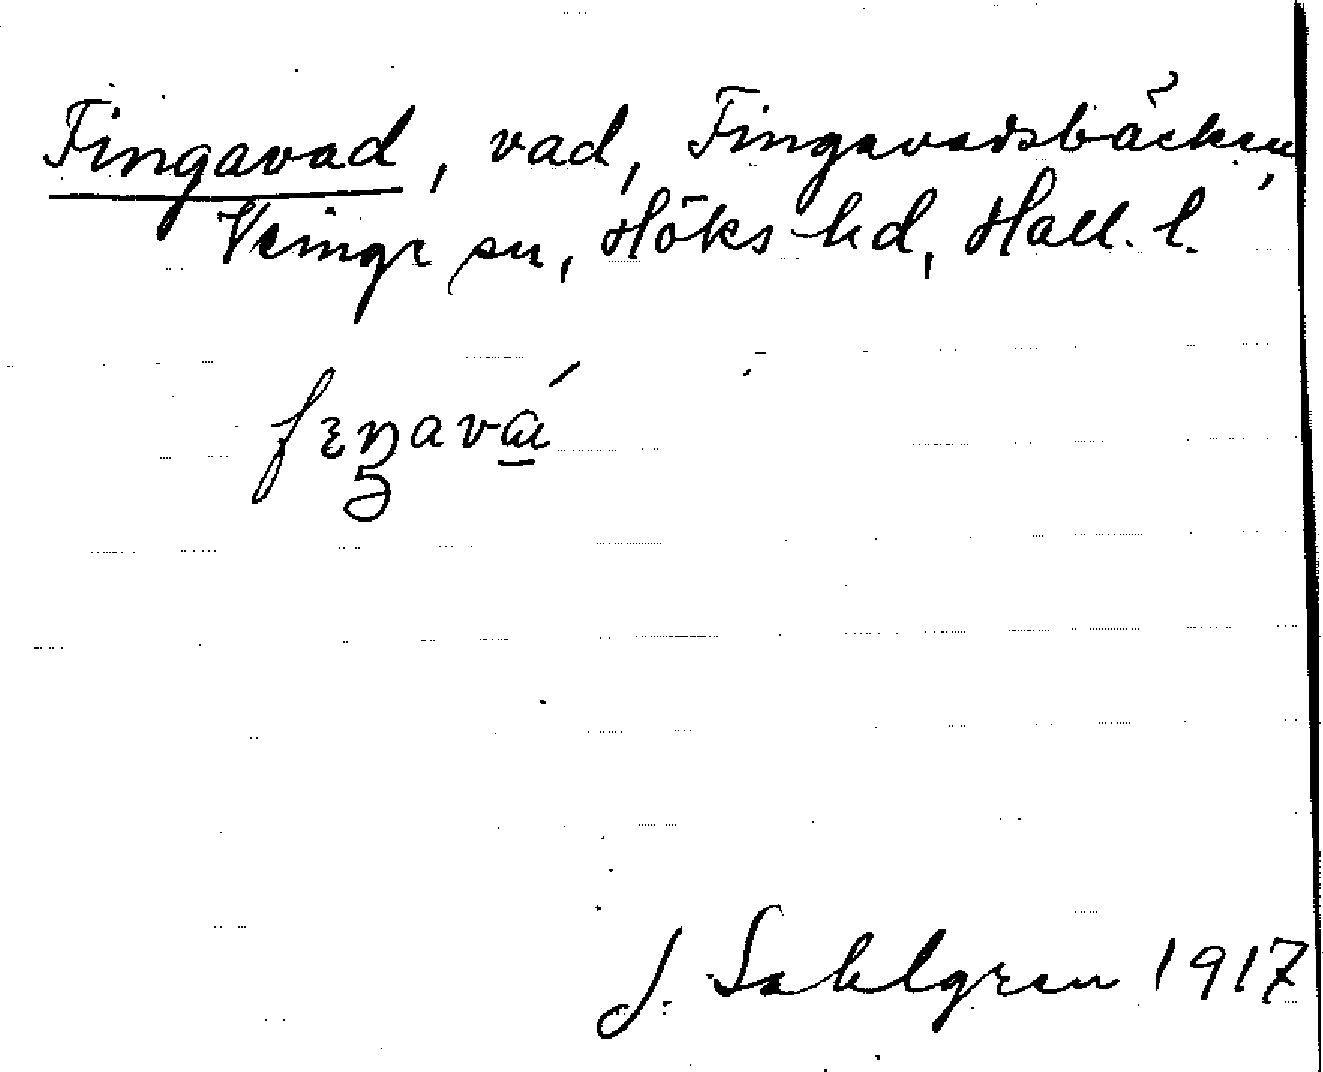 Fingavad, vad, Fingavadsbäcken,
Veinge sn, Höks hd, Hall. l.
J. Sahlgren 1917